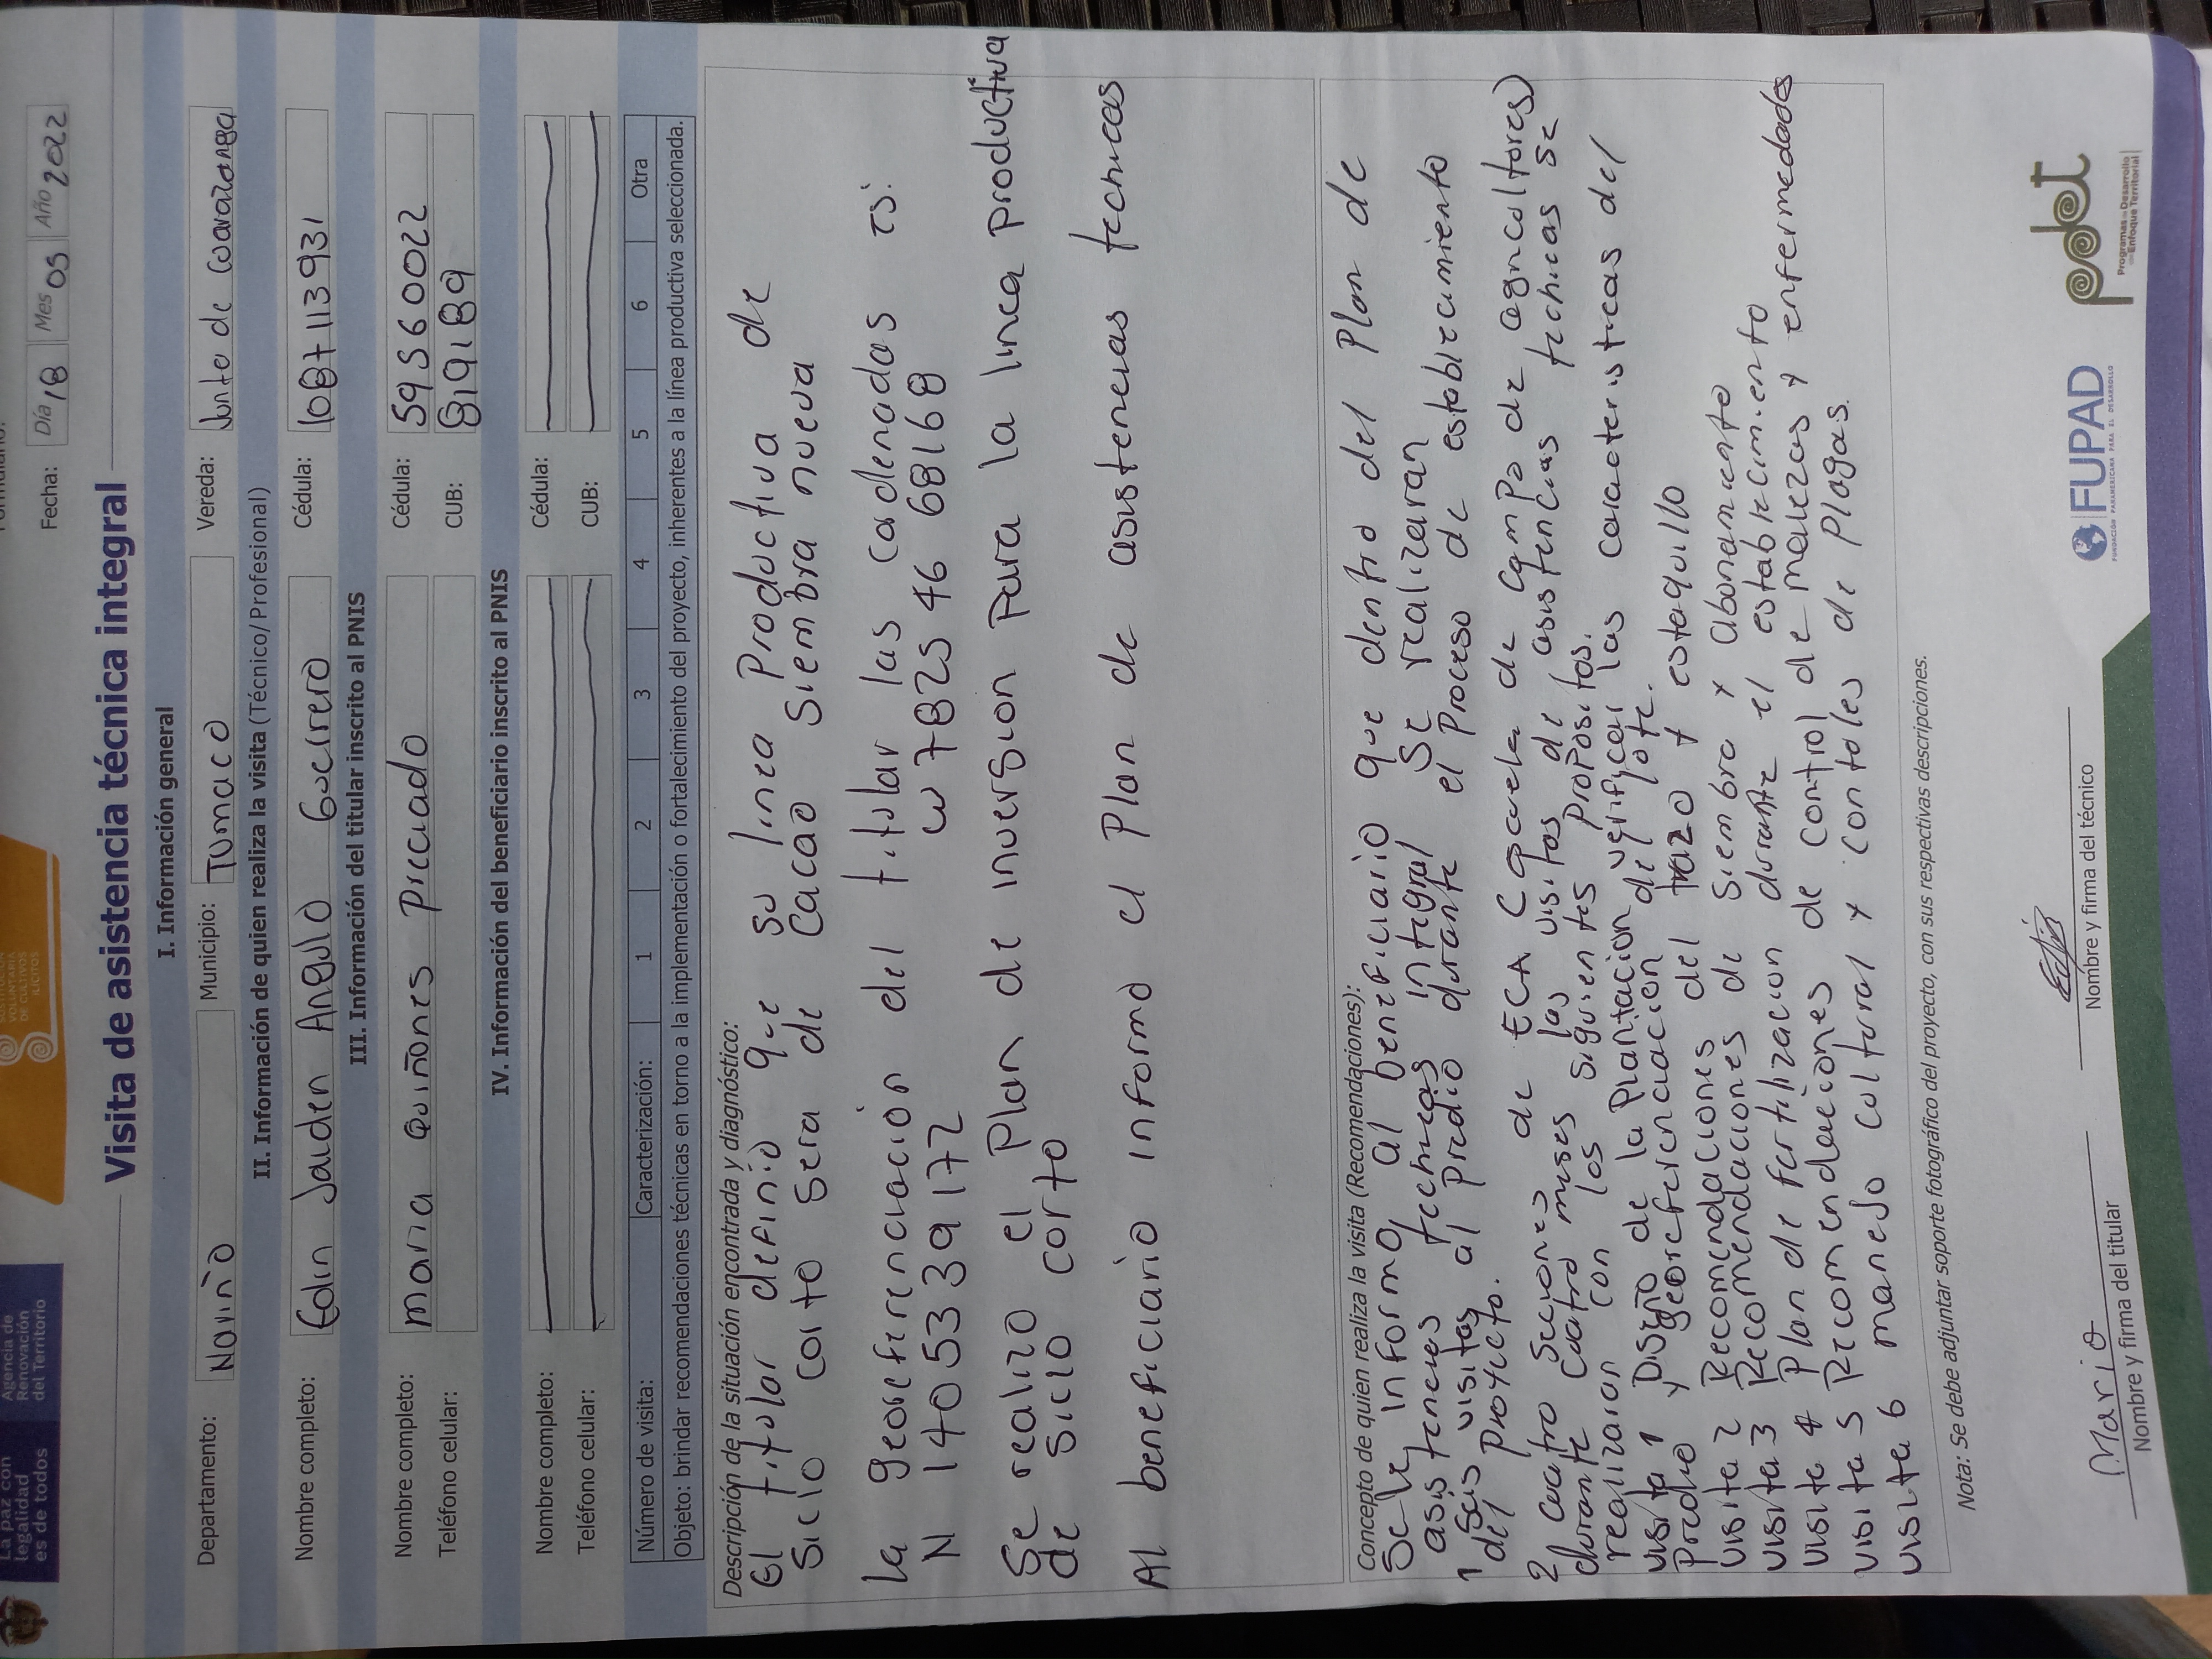 La paz con
legalidad
es de todos
Agencia de
Renovación
del Territorio
SUSTITUCIÓN
VOLUNTARIA
DE CULTIVOS
ILÍCITOS
Fecha: Día 18 Mes 05 Año 2022
Visita de asistencia técnica integral
I. Información general
Departamento: Nariño Municipio: Tumaco Vereda:
II. Información de quien realiza la visita (Técnico/ Profesional)
Nombre completo: Edin Jauden Angulo Guerrero Cédula: 1087113931
III. Información del titular inscrito al PNIS
Nombre completo: Maria Quiñones Preciado Cédula: 59560022
Teléfono celular: CUB: 819189
IV. Información del beneficiario inscrito al PNIS
Nombre completo: Cédula:
Teléfono celular: CUB:
Número de visita: Caracterización: 1 2 3 4 5 6 Otra
Objeto: brindar recomendaciones técnicas en torno a la implementación o fortalecimiento del proyecto, inherentes a la línea productiva seleccionada.
Descripción de la situación encontrada y diagnóstico:
El titular definio que su linea Productiva de
siclo corto sera de cacao siembra nueva
la georefirenciacion del titular las cadenadas es:
N 1 40 53 39 172 W 78 25 46 68168
Se realizo el Plan de inversion Para la linea productiva
de siclo corto
Al beneficiario informo el Plan de asistencias tecnicas
Concepto de quien realiza la visita (Recomendaciones):
Se le informo al beneficiario que dentro del Plan de
asistencias tecnicas integral se realizaran
1 seis visitas al Predio durante el Proceso de establecimiento
del Proyecto.
2 cuatro secciones de ECA (escuela de campo de agricultores)
durante cuatro meses las visitas de asistencias tecnicas se
realizaran con los siguientes propositos.
visita 1 Diseño de la Plantacion verificar las caracteristicas del
Predio y georeferenciacion del lote.
visita 2 Recomendaciones del trazo y estaquillo
visita 3 Recomendaciones de siembra y abonamiento
visita 4 Plan de fertilizacion durante el establecimiento
visita 5 Recomendaciones de control de malezas y enfermedades
visita 6 manejo cultural y contoles de Plagas.
Nota: Se debe adjuntar soporte fotográfico del proyecto, con sus respectivas descripciones.
Nombre y firma del titular
Nombre y firma del técnico
FUPAD
FUNDACIÓN PANAMERICANA PARA EL DESARROLLO
pdet
Programas de Desarrollo
con Enfoque Territorial